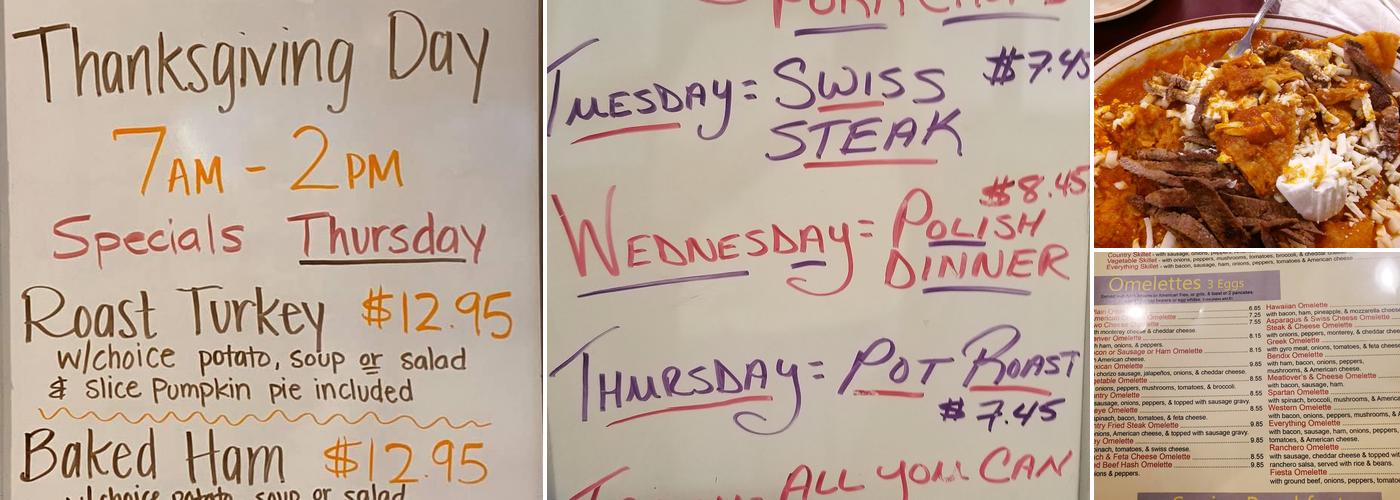 Thanksgiving Day
7AM - 2PM
Specials Thursday
Roast Turkey $12.95
w/choice potato, soup or salad
& slice Pumpkin pie included
Baked Ham $12.95
w/choice potato, soup or salad
PORK CHOPS
TUESDAY = SWISS $7.45
STEAK
$8.45
WEDNESDAY = POLISH
DINNER
THURSDAY = POT ROAST
$7.45
ALL YOU CAN
Country Skillet - with sausage, onions, peppers, mushrooms, tomatoes, broccoli, & cheddar
Vegetable Skillet - with onions, peppers, mushrooms, tomatoes, broccoli, & cheddar
Everything Skillet - with bacon, sausage, ham, onions, peppers, tomatoes & American cheese
Omelettes 3 Eggs
6.85
7.25
Omelette 7.55
with monterey cheese & cheddar cheese.
Omelette 8.15
ham, onions, & peppers.
Bacon or Sausage or Ham Omelette 8.15
Mexican Omelette 9.85
chorizo sausage, jalapeños, onions, & cheddar cheese.
Vegetable Omelette 8.55
onions, peppers, mushrooms, tomatoes, & broccoli.
Country Omelette 8.55
sausage, onions, peppers, & topped with sausage gravy.
Omelette 8.55
spinach, bacon, tomatoes, & feta cheese.
Country Fried Steak Omelette 9.85
onions, American cheese, & topped with sausage gravy.
Omelette 9.85
spinach, tomatoes, & swiss cheese.
& Feta Cheese Omelette 8.55
Beef Hash Omelette 9.85
& peppers.
Hawaiian Omelette
with bacon, ham, pineapple, & mozzarella cheese
Asparagus & Swiss Cheese Omelette
Steak & Cheese Omelette
with onions, peppers, monterey, & cheddar
Greek Omelette
with gyro meat, onions, tomatoes, & feta
Bendix Omelette
with ham, bacon, onions, peppers,
mushrooms, & American cheese.
Meatlover's & Cheese Omelette
with bacon, sausage, ham.
Spartan Omelette
with spinach, broccoli, mushrooms, &
Western Omelette
with bacon, onions, peppers, mushrooms, &
Everything Omelette
with bacon, sausage, ham, onions, peppers,
tomatoes, & American cheese.
Ranchero Omelette
with sausage, cheddar cheese & topped
ranchero salsa, served with rice & beans.
Fiesta Omelette
with ground beef, onions, peppers,